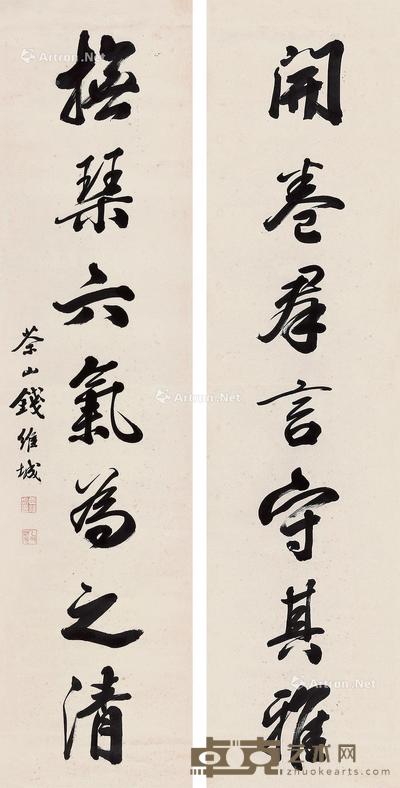 開卷群言守其雅
撫琴六氣為之清
茶山錢維城
Artron.Net
Artron.Net
Artron.Net
Artron.Net
Artron.Net
卓克艺术网
zhuokearts.com